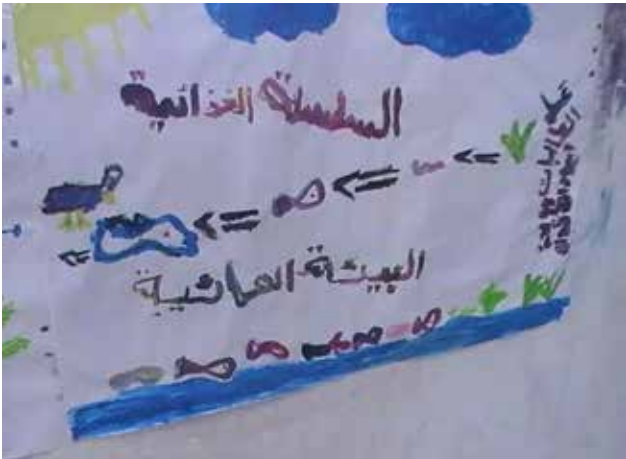 السلسلة الغذائية
البيئة المائية